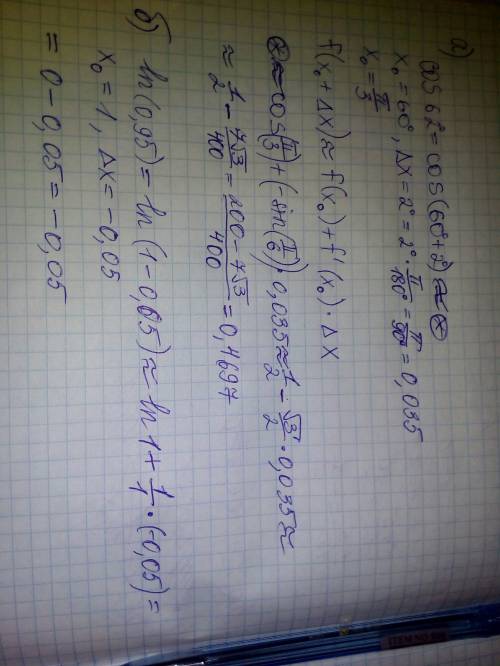 а) cos 62 = cos(60°+2°) ≈ ⊗
x₀ = 60°, Δx = 2° = 2° · π/180° = π/90 = 0,035
x₀ = π/3
f(x₀ + Δx) ≈ f(x₀) + f'(x₀) · Δx
⊗ ≈ cos(π/3) + (-sin(π/6)) · 0,035 ≈ 1/2 - √3/2 · 0,035 ≈
≈ 1/2 - 7√3/400 = 200 - 7√3/400 = 0,4697
б) ln(0,95) = ln(1 - 0,05) ≈ ln 1 + 1/1 · (-0,05) =
x₀ = 1, Δx = -0,05
= 0 - 0,05 = -0,05